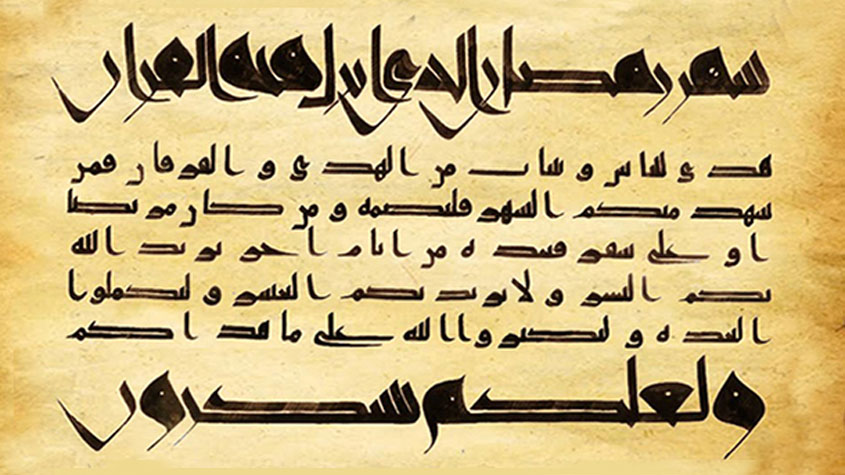 شهر رمضان الذي انزل فيه القران
هدى للناس وبينات من الهدى والفرقان فمن
شهد منكم الشهر فليصمه ومن كان مريضا
او على سفر فعدة من ايام اخر يريد الله
بكم اليسر ولا يريد بكم العسر ولتكملوا
العدة ولتكبروا الله على ما هداكم
ولعلكم تشكرون